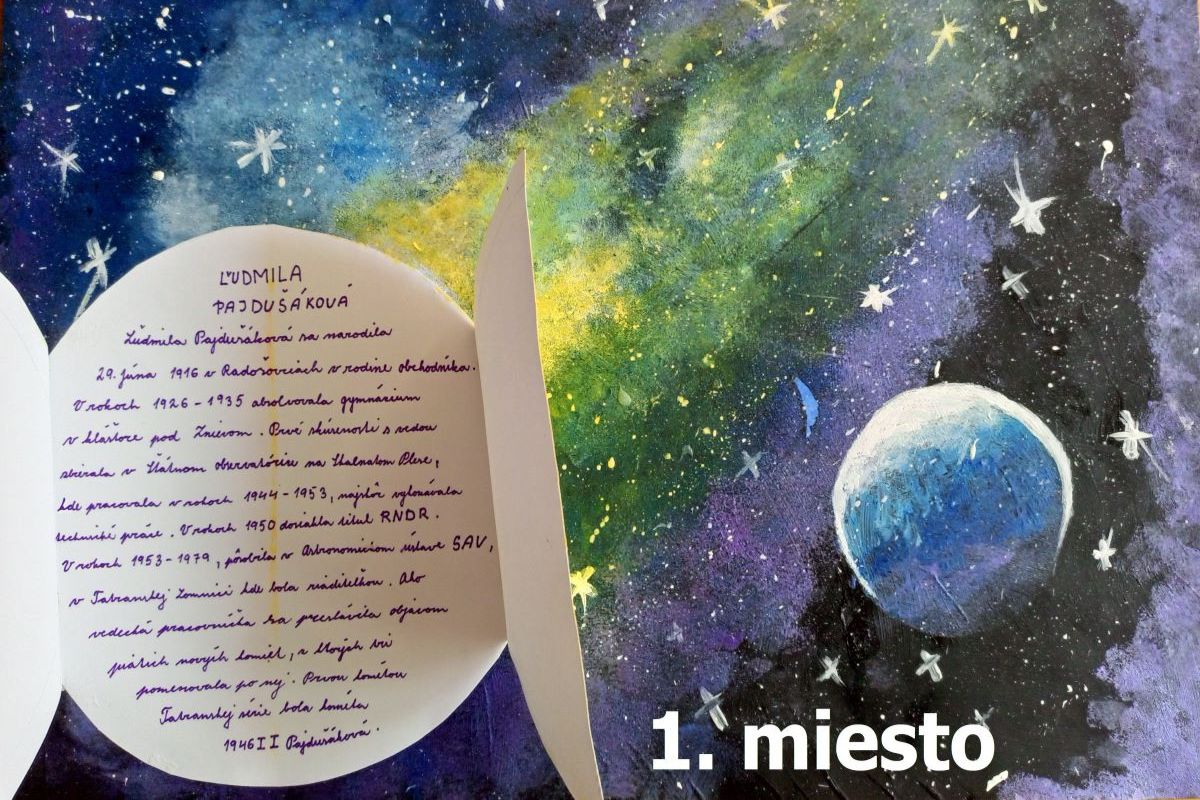 ĽUDMILA
PAJDUŠÁKOVÁ
Ľudmila Pajdušáková sa narodila
29. júna 1916 v Radošovciach v rodine obchodníka.
V rokoch 1926 - 1935 absolvovala gymnázium
v kláštore pod Znievom. Prvé skúsenosti s vedou
zbierala v Štátnom observatóriu na Skalnatom Plese,
kde pracovala v rokoch 1944 - 1953, najskôr vykonávala
technické práce. V rokoch 1950 dosiahla titul RNDR.
V rokoch 1953 - 1979, pôsobila v Astronomickom ústave SAV,
v Tatranskej Lomnici kde bola riaditeľkou. Ako
vedecká pracovníčka sa preslávila objavom
piatich nových komiet, z ktorých tri
pomenovala po nej. Prvou kométou
Tatranskej série bola kométa
1946II Pajdušáková.
1. miesto